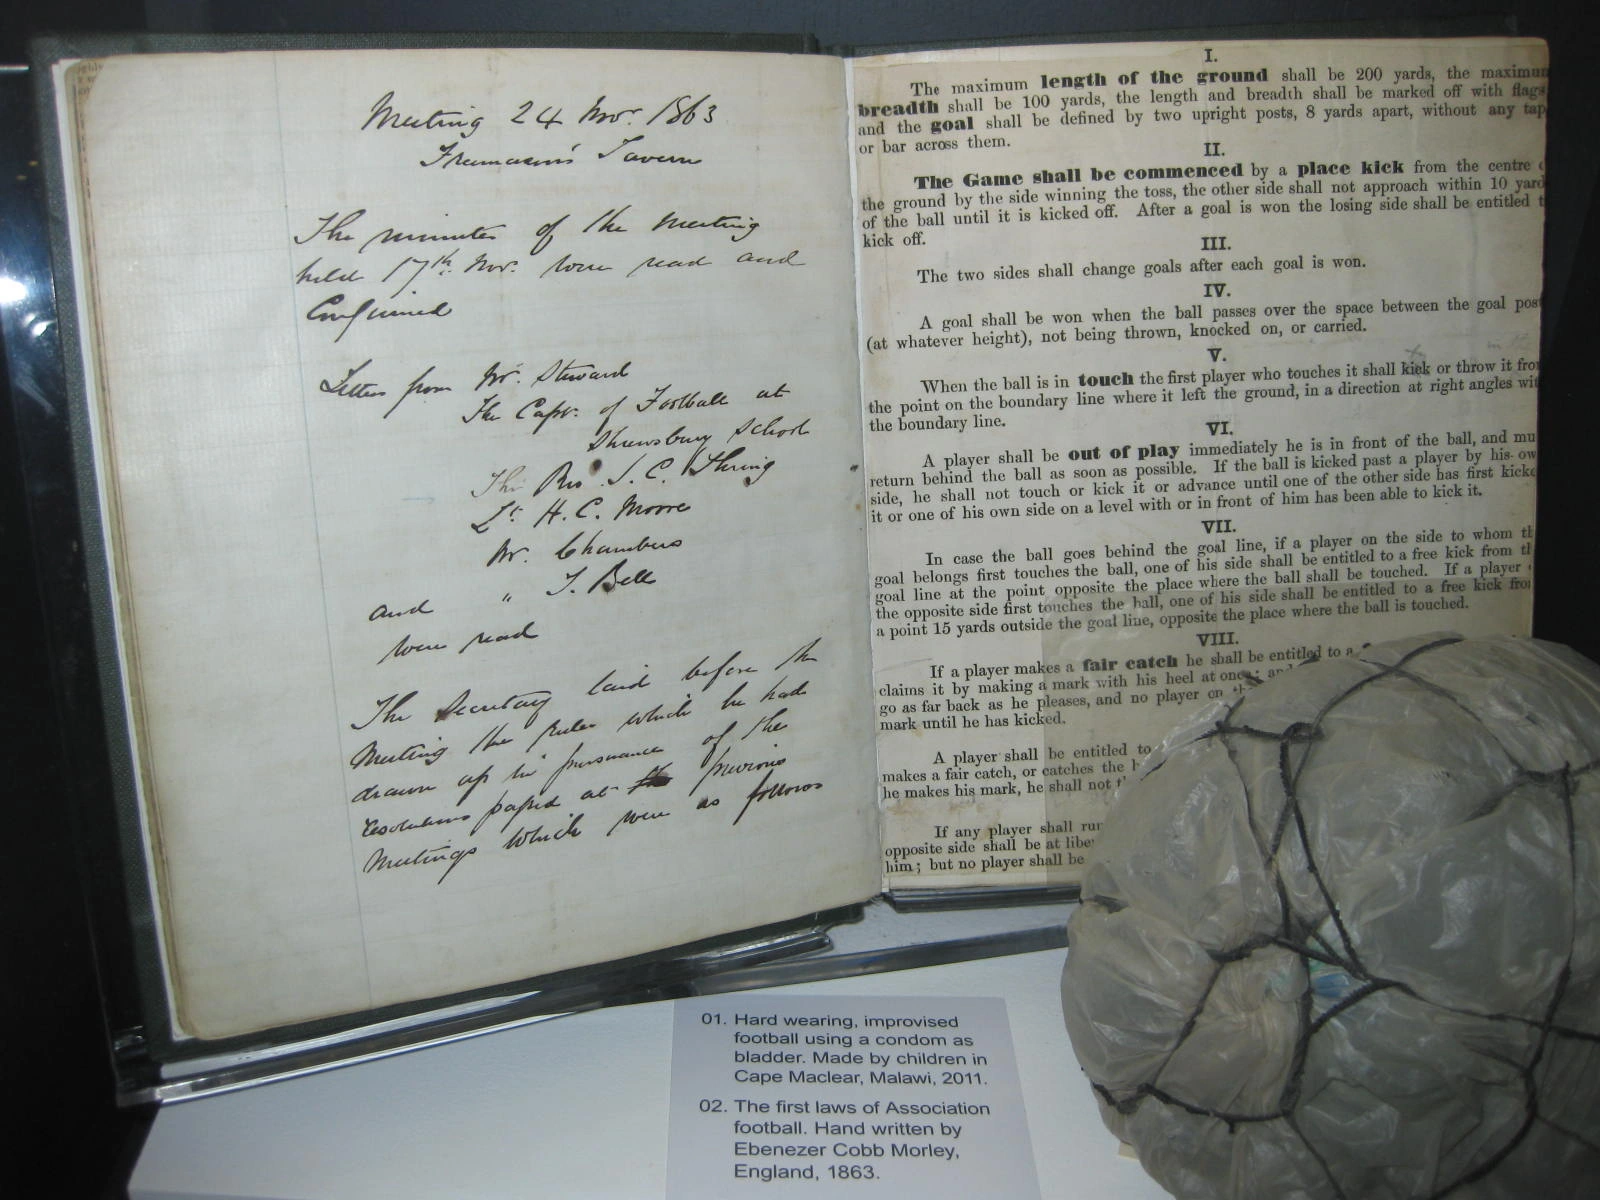 Meeting 24 Nov. 1863
Freemason's Tavern
The minutes of the Meeting
held 17th. Nov. were read and
Confirmed
Letters from Mr. Steward
The Capt. of Football at
Shrewsbury School
The Rev. J. C. Thring
Lt. H. C. Moore
Mr. Chambers
and " J. Bell
were read
The Secretary laid before the
Meeting the rules which he had
drawn up in pursuance of the
resolutions passed at previous
Meetings which were as follows
I.
The maximum length of the ground shall be 200 yards, the maximum
breadth shall be 100 yards, the length and breadth shall be marked off with flags
and the goal shall be defined by two upright posts, 8 yards apart, without any tap
or bar across them.
II.
The Game shall be commenced by a place kick from the centre
the ground by the side winning the toss, the other side shall not approach within 10 yard
of the ball until it is kicked off. After a goal is won the losing side shall be entitled t
kick off.
III.
The two sides shall change goals after each goal is won.
IV.
A goal shall be won when the ball passes over the space between the goal post
(at whatever height), not being thrown, knocked on, or carried.
V.
When the ball is in touch the first player who touches it shall kick or throw it from
the point on the boundary line where it left the ground, in a direction at right angles wit
the boundary line.
VI.
A player shall be out of play immediately he is in front of the ball, and mu
return behind the ball as soon as possible. If the ball is kicked past a player by his ow
side, he shall not touch or kick it or advance until one of the other side has first kicke
it or one of his own side on a level with or in front of him has been able to kick it.
VII.
In case the ball goes behind the goal line, if a player on the side to whom th
goal belongs first touches the ball, one of his side shall be entitled to a free kick from th
goal line at the point opposite the place where the ball shall be touched. If a player
the opposite side first touches the ball, one of his side shall be entitled to a free kick from
a point 15 yards outside the goal line, opposite the place where the ball is touched.
VIII.
If a player makes a fair catch he shall be entitled to a
claims it by making a mark with his heel at once; and
go as far back as he pleases, and no player on
mark until he has kicked.
A player shall be entitled to
makes a fair catch, or catches the
he makes his mark, he shall not
If any player shall run
opposite side shall be at liber
him; but no player shall be
01. Hard wearing, improvised
football using a condom as
bladder. Made by children in
Cape Maclear, Malawi, 2011.
02. The first laws of Association
football. Hand written by
Ebenezer Cobb Morley,
England, 1863.